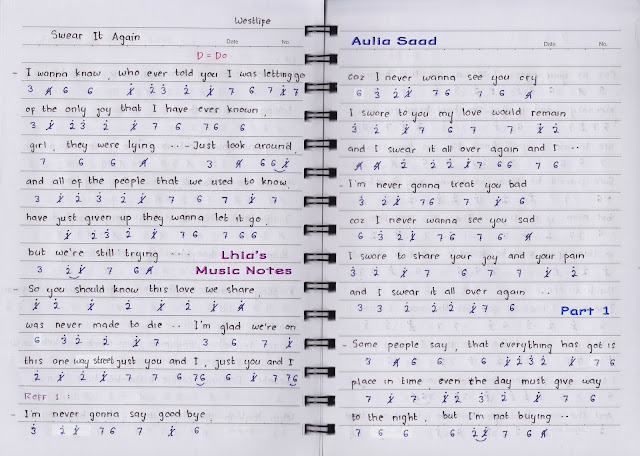 Westlife
Swear It Again
Date No.
D = Do
- I wanna know, who ever told you I was letting go
3 4 6 6 1 2 3 2 1 7 6 7 1 7
of the only joy that I have ever known,
3 1 2 3 2 1 7 6 7 6 6
girl, they were lying --- Just look around,
7 6 6 4 3 4 6 6 1
and all of the people that we used to know,
3 1 2 3 2 1 7 7 6 7 1 7
have just given up they wanna let it go,
1 2 3 2 1 7 6 7 6 6
but we're still trying ---
3 2 1 7 6 4
Lhia's
Music Notes
So you should know this love we share,
1 2 1 2 1 2 1 4
was never made to die -- I'm glad we're on
6 3 2 2 1 7 3 6 7 1
this one way street just you and I, just you and I
2 1 2 1 7 7 6 7 6 1 7 7 6
Reff 1 :
- I'm never gonna say good bye,
3 2 1 7 6 7 1 6
Aulia Saad
Date No.
coz I never wanna see you cry
6 3 2 1 7 6 7 7 6
I swore to you my love would remain
3 2 1 7 6 7 7 1 2
and I swear it all over again and I --
4 4 2 2 2 1 7 6 6 7 6
- I'm never gonna treat you bad
3 2 1 7 6 7 1 6
coz I never wanna see you sad
6 3 2 1 7 6 7 6 6
I swore to share your joy and your pain
3 2 1 7 6 7 7 1 2
and I swear it all over again --
3 3 2 2 2 1 7 6
Part 1
- Some people say, that everything has got is
3 4 6 6 6 1 2 3 2 1 7 6
place in time even the day must give way
7 1 7 1 2 3 2 1 7 7
to the night, but I'm not buying --
7 6 6 6 2 1 7 6 4